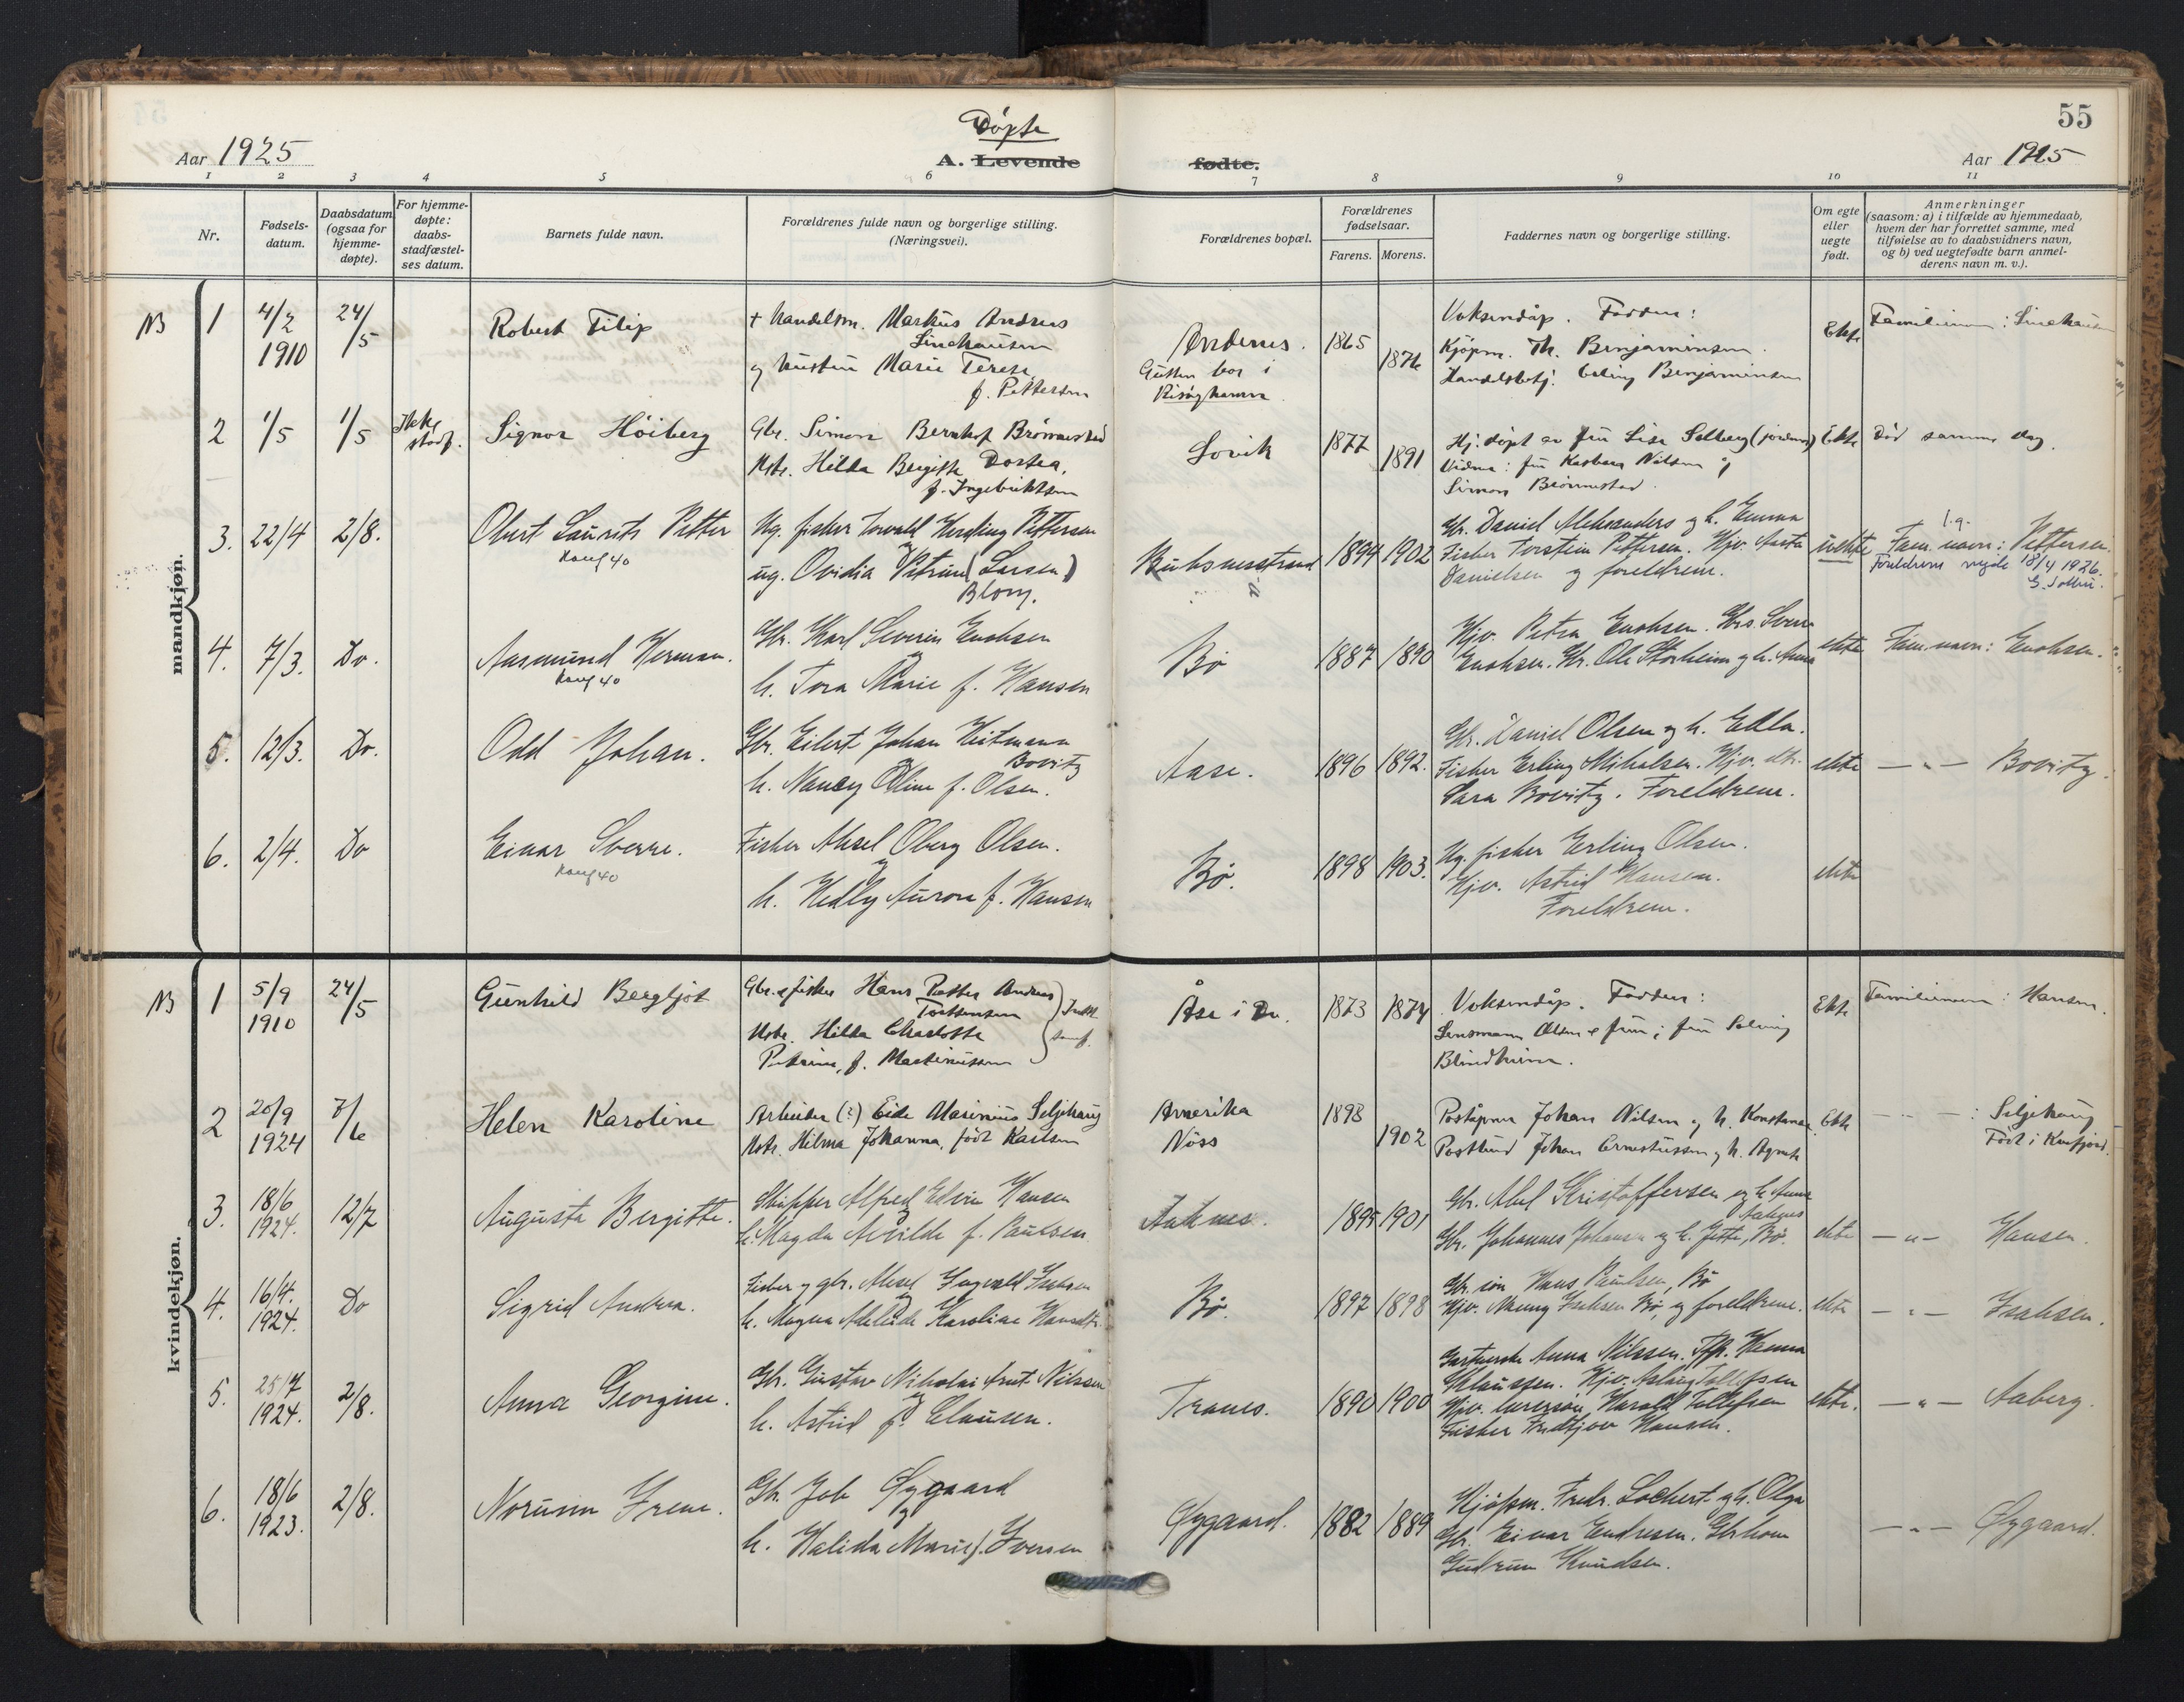 55
Døpte
Aar 1925
A. Levende fødte.
Aar 1925
1 2 3 4 5 6 7 8 9 10 11
Nr.
Fødsels-
datum.
Daabsdatum
(ogsaa for
hjemme-
døpte).
For hjemme-
døpte:
daabs-
stadfæstel-
ses datum.
Barnets fulde navn.
Forældrenes fulde navn og borgerlige stilling.
(Næringsvei).
Forældrenes bopæl.
Forældrenes
fødselsaar.
Farens. Morens.
Faddernes navn og borgerlige stilling.
Om egte
eller
uegte
født.
Anmerkninger
(saasom: a) i tilfælde av hjemmedaab,
hvem der har forrettet samme, med
tilføielse av to daabsvidners navn,
og b) ved uegtefødte barn anmel-
derens navn m. v.).
mandkjøn.
NB 1 4/2 1910 24/5
Robert Filip
+ Handelsm. Markus Andreas
og hustru Marie Terese
f. Pettersen
Andenes.
Gutten bor i
Risøyhamn
1865 1876
Voksendåp. Faddere:
Kjøpm. Th. Benjaminsen.
Handelsbetj. Erling Benjaminsen
Ekte
2 1/5 1/5 Ikke stadf.
Signor Høiberg
Gbr. Simon Bernhof Brønnestad
Hstr. Hilda Bergitte Dortea,
f. Ingebriktsen
1877 1891
Hj. døpt av fru Lisa Solberg (jordmor)
Vidner: fru Kasbara Nilsen og
Simon Brønnestad.
Ekte
Død samme dag.
3. 22/4 2/8.
Obert Laurits Petter
Konf 40
Ug. fisker Torvald Herding Pettersen
og
ug. Ovidia Petrine (Larsen)
Blom.
Buksnesstrand
1894 1902
Gbr. Daniel Aleksanders og h. Emma
Fisker Torstein Pettersen. Hjv. Aasta
Danielsen og foreldrene.
uekte
Fam. navn: Pettersen.
Foreldrene vigde 18/4 1926.
4. 7/3. Do.
Aasmund Herman.
Konf 40
Gbr. Karl Severin Enoksen
og
h. Tora Marie f. Hansen
Bø
1887 1890
Hjv. Petra Enoksen. Gbrs. Sverre
Enoksen. Gbr. Ole Storheim og h. Anna
ekte
Fam. navn: Enoksen.
5. 12/3. Do.
Odd Johan.
Gbr. Eilert Johan Heitmann
Bovitz
og
h. Nancy Oline f. Olsen.
Aase.
1896 1892.
Gbr. Daniel Olsen og h. Edla.
Fisker Erling Mikalsen. Hjv. dtr.
Sara Bovitz. Foreldrene.
ekte
— " — Bovitz.
6. 2/4. Do
Einar Sverre.
Konf 40
Fisker Aksel Oberg Olsen.
og
h. Hedly Aurora f. Hansen
Bø.
1898 1903.
Ug. fisker Erling Olsen.
Hjv. Astrid Hansen.
Foreldrene.
ekte
kvindekjøn.
NB 1 5/9 1910 24/5
Gunhild Bergljot
Gbr. & fisker Hans Petter Andreas
Torstensen
Hstr. Hilda Charlotte
Petrine, f. Martinussen
Åse i Dv.
1873 1874
Voksendåp. Faddere:
Lensmann Olsen & frue; frue Solveig
Blindheim.
Ekte
Familienavn: Hansen.
2 20/9 1924 7/6
Helen Karoline
Arbeider (?) Eide Marinius Seljehaug
Hstr. Hilma Johanna, født Karlsen
Amerika
Nøss
1898 1902
Poståpner Johan Nilsen og h. Konstanse.
Postbud Johan Ernestussen og h. Agnete
Ekte
— " — : Seljehaug
Født i Kvæfjord.
3. 18/6 1924. 12/7
Augusta Bergitte.
Skipper Alfred Edvin Hansen
og
h. Magda Alvilde f. Paulsen
Aaknes.
1895 1901
Gbr. Abel Kristoffersen og h. Anna
Aaknes
Gbr. Johannes Johansen og h. Jette, Bø.
ekte
— " — Hansen.
4. 16/4. 1924. Do
Sigrid Andrea.
Fisker og gbr. Aksel Ingvald Isaksen
og
h. Magna Adeleide Karoline Hansdtr.
Bø.
1897 1898
Gbr. søn Hans Paulsen, Bø
Hjv. Nanny Isaksen Bø, og foreldrene.
ekte
— " — Isaksen.
5. 25/7 1924. 2/8.
Anna Georgine.
Gbr. Gustav Nikolai Arnt Nilssen
og
h. Astrid f. Clausen.
Tranes.
1890 1900
Gartnerske Anna Nilssen. Tjp. Hanna
Klaussen. Hjv. Aslaug Tollefsen
Harald Tollefsen
Fisker Fridtjov Hansen.
ekte.
— " — Aaberg.
6. 18/6 1923. 2/8.
Norunn Irene.
Gbr. Job Øygaard
og
h. Halida Marie f. Iversen
Øygaard.
1882 1889
Kjøpm. Fredr. Lockert og h. Olga
Gbr. Einar Endresen. Gbrkone
Gudrun Knudsen.
— " — Øygaard.